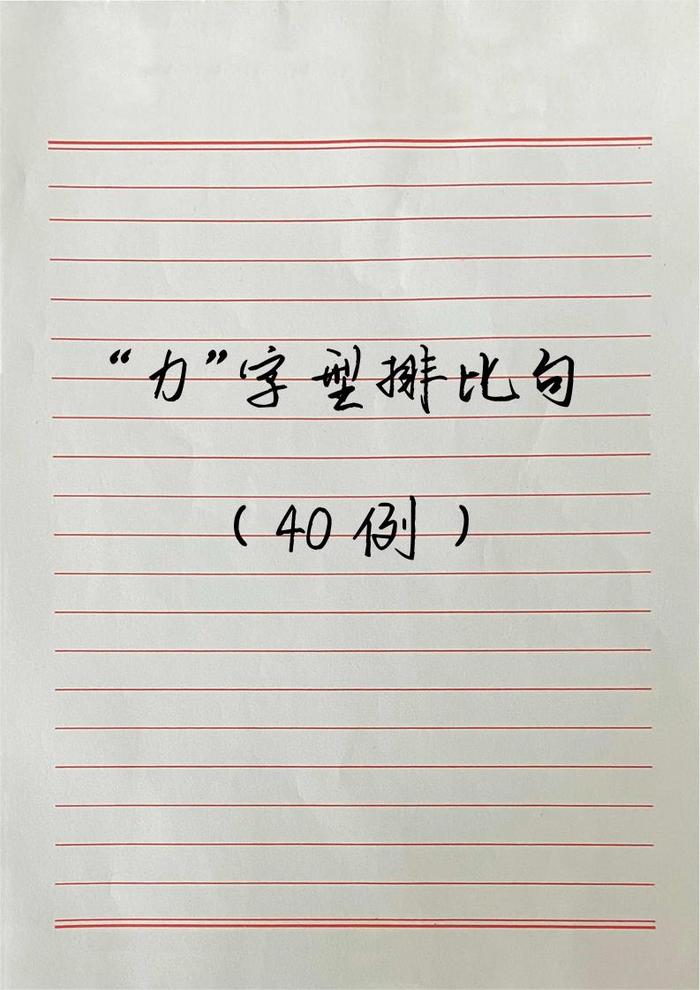 “力”字型排比句
（40例）